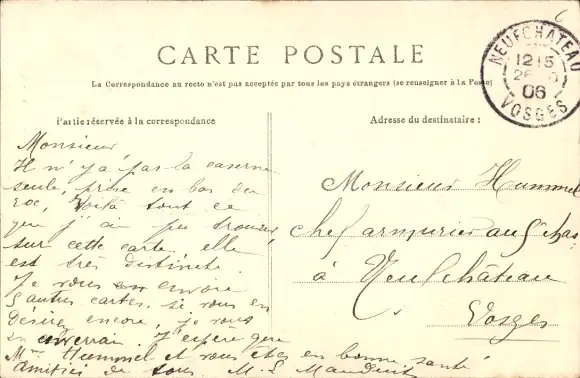 6
CARTE POSTALE
La Correspondance au recto n'est pas acceptée par tous les pays étrangers (se renseigner à la Poste)
NEUFCHATEAU
1215
26
06
VOSGES
Partie réservée à la correspondance
Monsieur
Il n'y a pas la caserne
seule, prise en bas du
roc, Voilà tout ce
que j'ai pu trouver
sur cette carte elle
est très distincte.
Je vous en envoie
5 autres cartes, si vous en
Désirez encore, je vous
en enverrai. J'espère que
Mme Hummel et vous êtes en bonne santé
amitiés de tous. M. L. Mauduit
Adresse du destinataire :
Monsieur Hummel
chef armurier au chas.
à Neufchâteau
Vosges